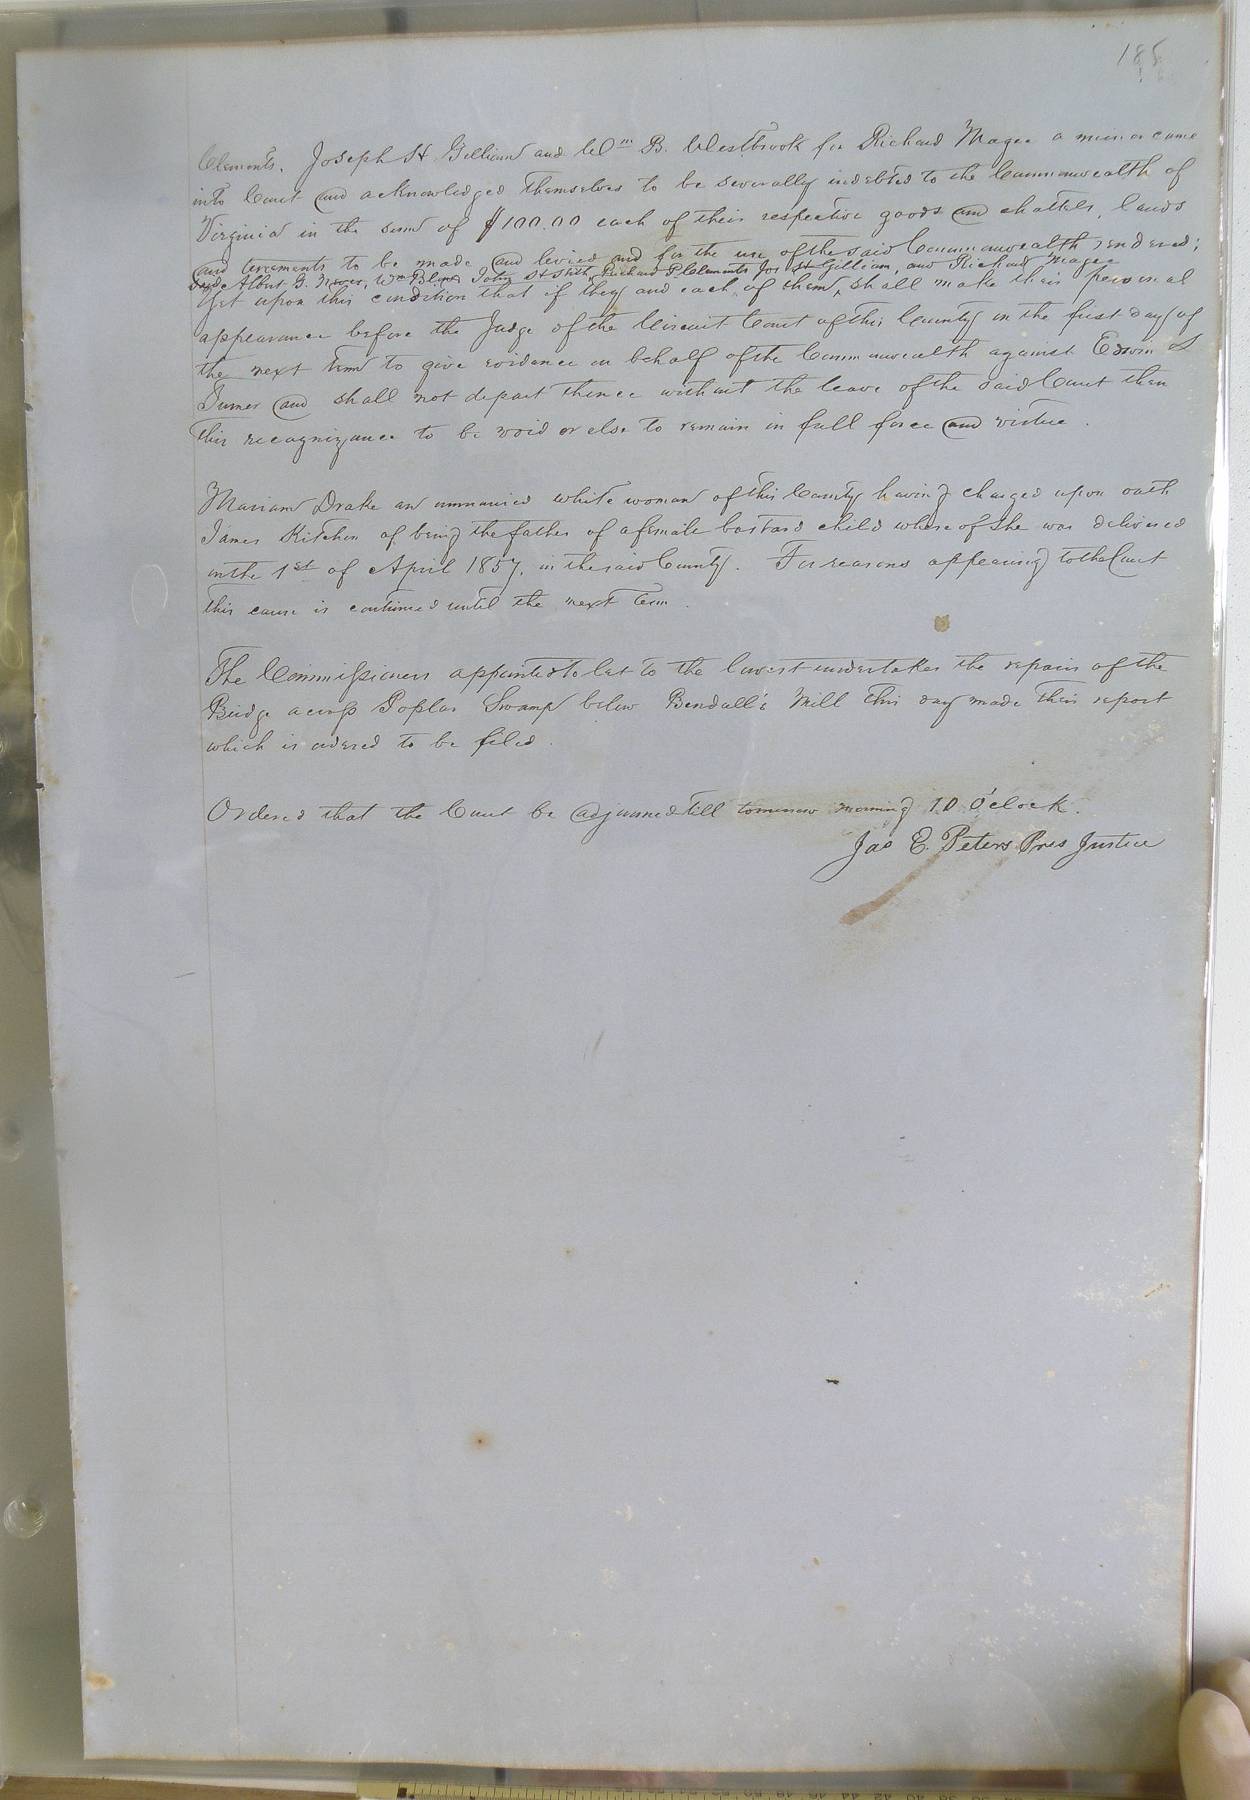 185
Clements, Joseph H Gilliam and Wm B. Westbrook for Richard Magee a minor came
into Court and acknowledged themselves to be severally indebted to the Commonwealth of
Virginia in the sum of $100.00 each of their respective goods and chattels, lands
and tenements to be made and levied and for the use of the said Commonwealth rendered;
said Albert G. Wm John H Stith, Richard P Clements Jos H Gilliam, and Richard Magee
Yet upon this condition that if they and each of them, shall make their personal
appearance before the Judge of the Circuit Court of this County on the first day of
the next term to give evidence on behalf of the Commonwealth against Erwin
Turner and shall not depart thence without the leave of the said Court then
this recognizance to be void or else to remain in full force and virtue.
Mariam Drake an unmarried white woman of this County having charged upon oath
James Kitchen of being the father of a female bastard child whereof she was delivered
on the 1st of April 1857, in the said County. For reasons appearing to the Court
this cause is continued until the next Term.
The Commissioners appointed to let to the lowest undertaker the repairs of the
Bridge across Poplar Swamp below Bendall's Mill this day made their report
which is ordered to be filed.
Ordered that the Court be adjourned till tomorrow morning 10 O'clock.
Jas E. Peters Pres Justice